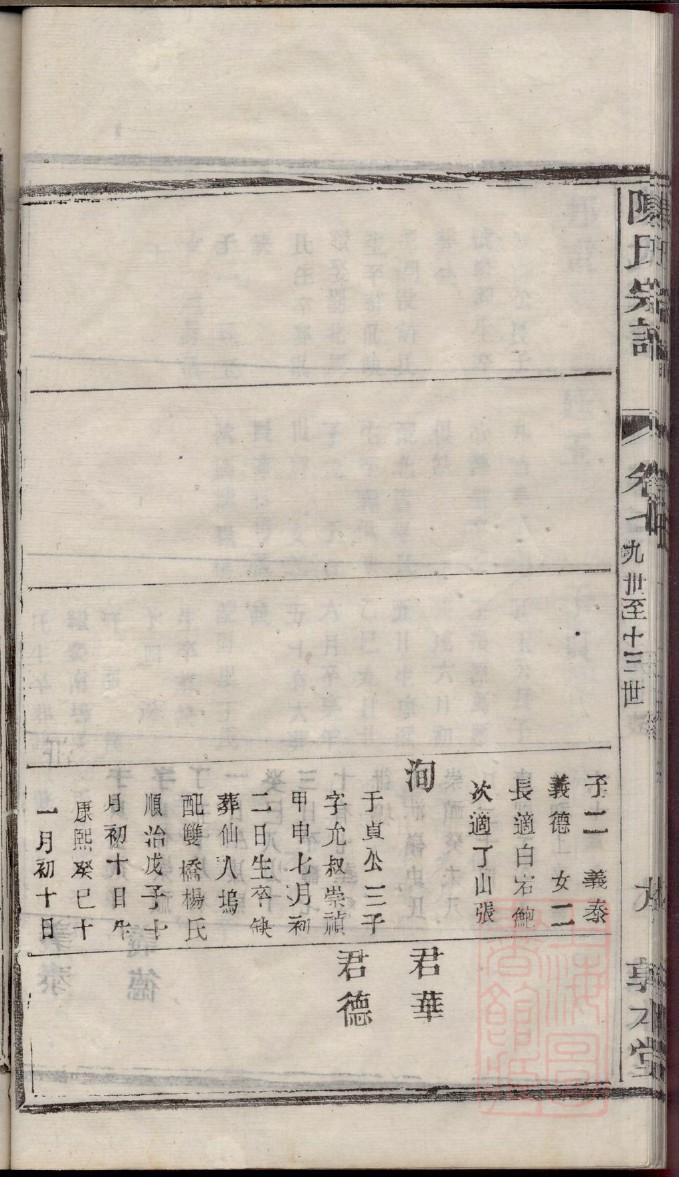 陳氏宗譜
卷七
九世至十三世
敦本堂
子二 義泰
義德 女二
長適白宕鮑
次適了山張
洵
于貞公三子
字允叔崇禎
甲申七月初
二日生卒缺
葬仙人塢
配雙橋楊氏
順治戊子十
月初十日生
康熙癸巳十
一月初十日
君華
君德